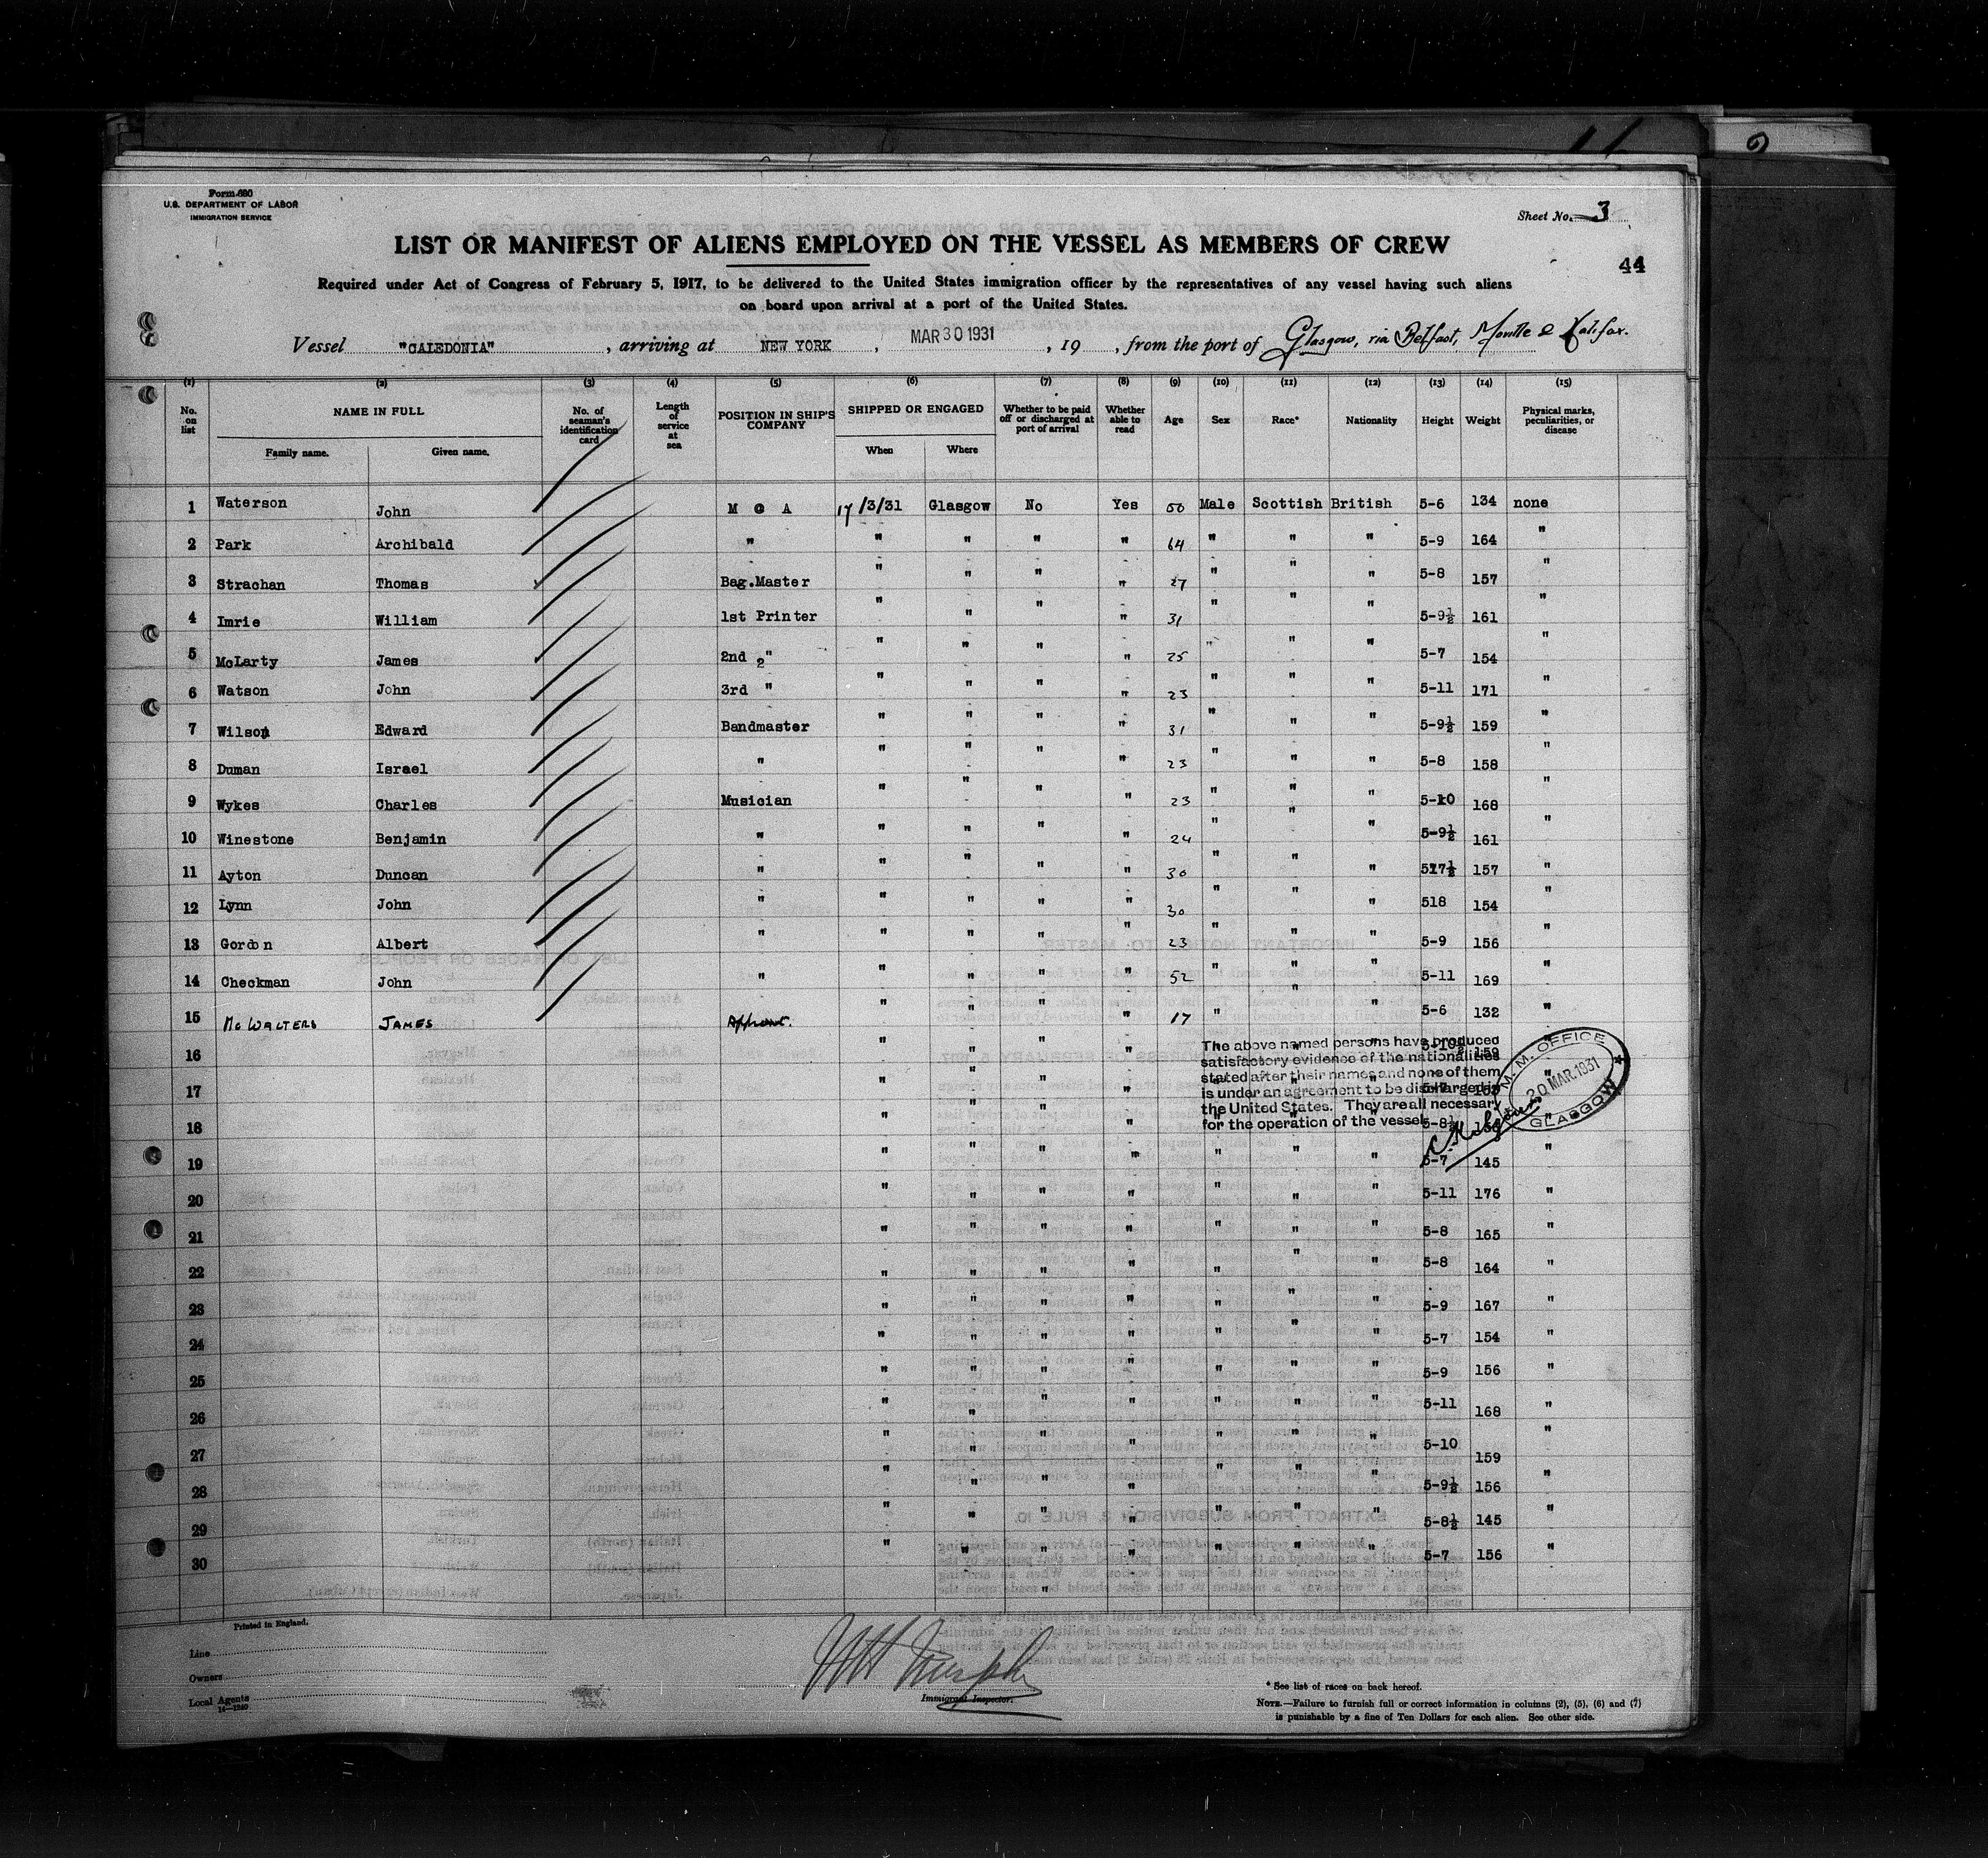 Form 680
U.S. DEPARTMENT OF LABOR
IMMIGRATION SERVICE
Sheet No. 3
LIST OR MANIFEST OF ALIENS EMPLOYED ON THE VESSEL AS MEMBERS OF CREW
44
Required under Act of Congress of February 5, 1917, to be delivered to the United States immigration officer by the representatives of any vessel having such aliens
on board upon arrival at a port of the United States.
Vessel "CALEDONIA", arriving at NEW YORK, MAR 30 1931, 19 , from the port of Glasgow, via Belfast, Moville & Halifax.
(1) (2) (3) (4) (5) (6) (7) (8) (9) (10) (11) (12) (13) (14) (15)
No. on list NAME IN FULL No. of seaman's identification card Length of service at sea POSITION IN SHIP'S COMPANY SHIPPED OR ENGAGED Whether to be paid off or discharged at port of arrival Whether able to read Age Sex Race* Nationality Height Weight Physical marks, peculiarities, or disease
Family name. Given name. When Where
1 Waterson John M O A 17/3/31 Glasgow No Yes 50 Male Scottish British 5-6 134 none
2 Park Archibald " " " " " 64 " " " 5-9 164 "
3 Strachan Thomas Bag.Master " " " " 27 " " " 5-8 157 "
4 Imrie William 1st Printer " " " " 31 " " " 5-9½ 161 "
5 McLarty James 2nd " " " " " 25 " " " 5-7 154 "
6 Watson John 3rd " " " " " 23 " " " 5-11 171 "
7 Wilson Edward Bandmaster " " " " 31 " " " 5-9½ 159 "
8 Duman Israel " " " " " 23 " " " 5-8 158 "
9 Wykes Charles Musician " " " " 23 " " " 5-10 168 "
10 Winestone Benjamin " " " " " 24 " " " 5-9½ 161 "
11 Ayton Duncan " " " " " 30 " " " 517½ 157 "
12 Lynn John " " " " " 30 " " " 518 154 "
13 Gordon Albert " " " " " 23 " " " 5-9 156 "
14 Checkman John " " " " " 52 " " " 5-11 169 "
15 McWALTERS JAMES " " " " 17 " " " 5-6 132 "
16 " " " " " " " 5-10½ 159 "
17 " " " " " " " 5-7 "
18 " " " " " " " 5-8½ "
The above named persons have produced
satisfactory evidence of the nationalities
stated after their names and none of them
is under an agreement to be discharged in
the United States. They are all necessary
for the operation of the vessel
M. M. OFFICE
20 MAR. 1931
GLASGOW
19 " " " " " " " 5-7 145 "
20 " " " " " " " 5-11 176 "
21 " " " " " " " 5-8 165 "
22 " " " " " " " 5-8 164 "
23 " " " " " " " 5-9 167 "
24 " " " " " " " 5-7 154 "
25 " " " " " " " 5-9 156 "
26 " " " " " " " 5-11 168 "
27 " " " " " " " 5-10 159 "
28 " " " " " " " 5-9½ 156 "
29 " " " " " " " 5-8½ 145 "
30 " " " " " " " 5-7 156 "
Printed in England.
Line
Owners
Local Agents
14—1240
Immigrant Inspector.
* See list of races on back hereof.
NOTE.—Failure to furnish full or correct information in columns (2), (5), (6) and (7)
is punishable by a fine of Ten Dollars for each alien. See other side.